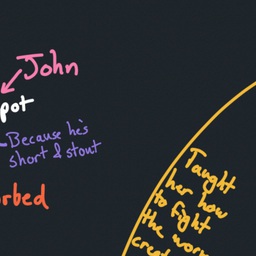 John
pot
Because he's
short & stout
orbed
Taught
her how
to fight
the worm